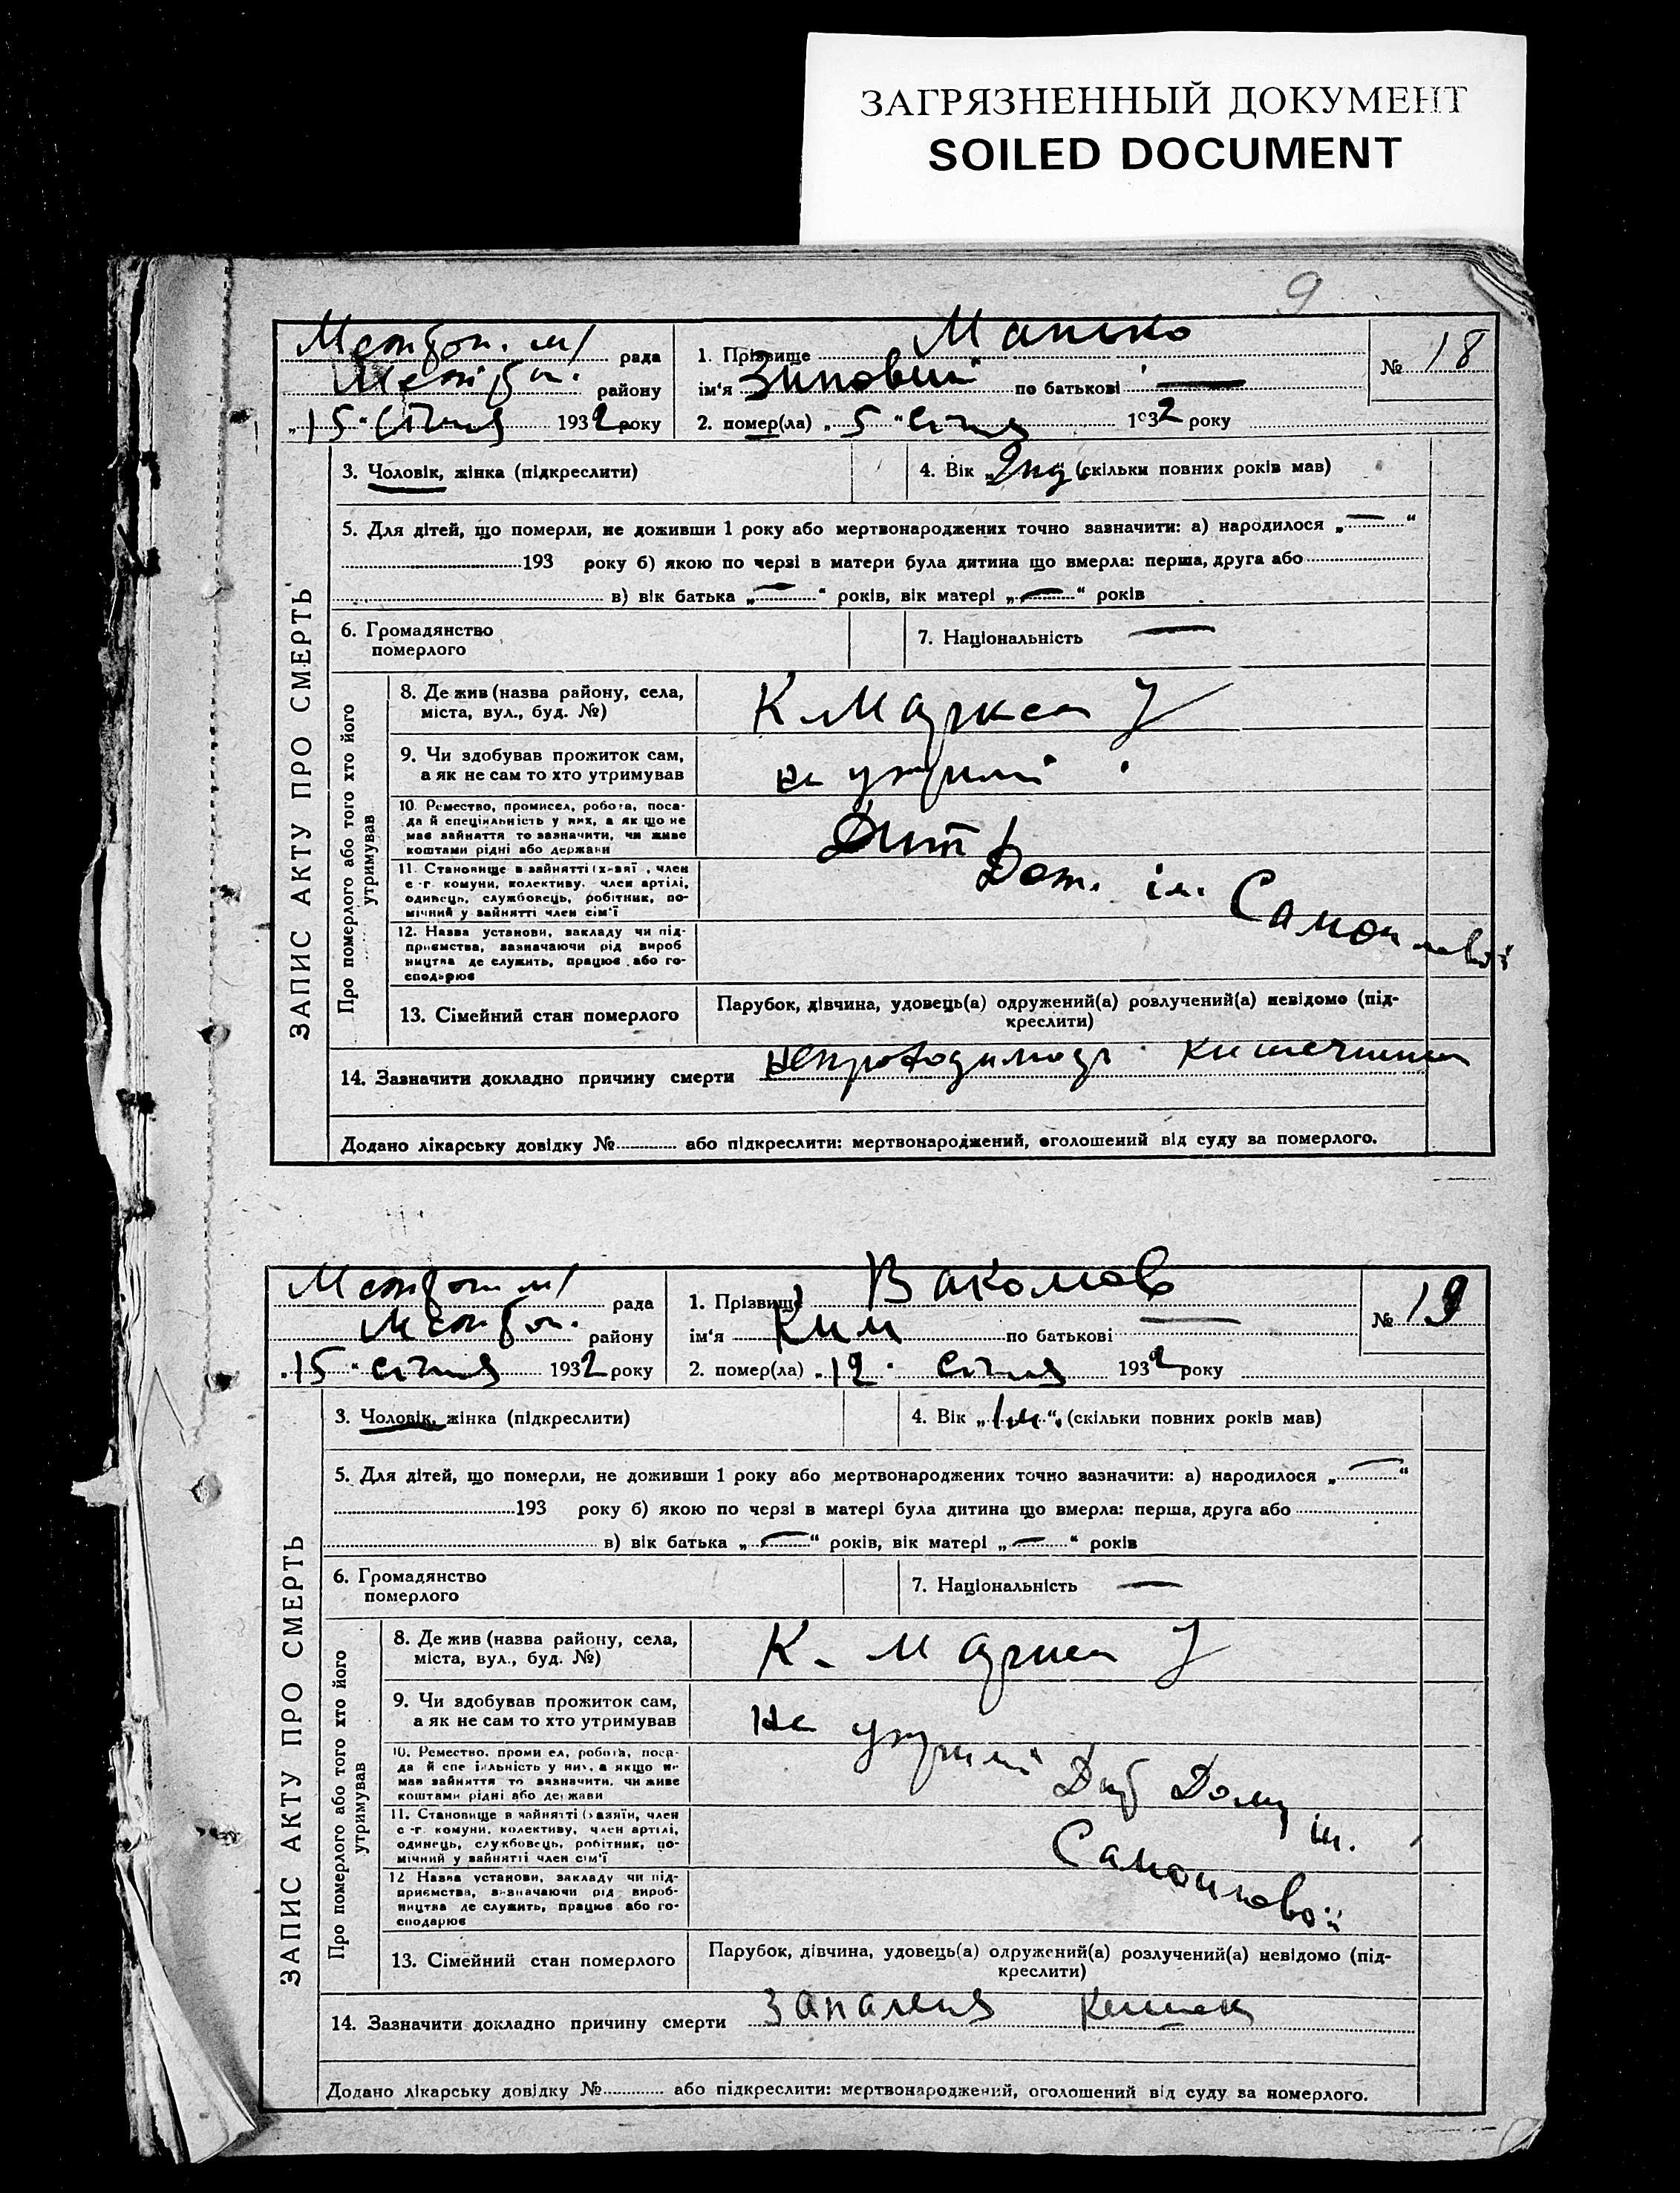 ЗАГРЯЗНЕННЫЙ ДОКУМЕНТ
SOILED DOCUMENT
9
рада
району
"15" Січня 1932 року
1. Прізвище Манько
ім'я Зиновий по батькові —
2. помер(ла) "5" Січня 1932 року
№ 18
3. Чоловік, жінка (підкреслити)
4. Вік (скільки повних років мав)
5. Для дітей, що померли, не доживши 1 року або мертвонароджених точно зазначити: а) народилося „—“
193 року б) якою по черзі в матери була дитина що вмерла: перша, друга або
в) вік батька „—“ років, вік матері „—“ років
6. Громадянство
померлого
7. Національність —
ЗАПИС АКТУ ПРО СМЕРТЬ
Про померлого або того хто його
утримував
8. Де жив (назва району, села,
міста, вул., буд. №)
К Маркса 7
9. Чи здобував прожиток сам,
а як не сам то хто утримував
на утрим
10. Ремество, промисел, робота, поса-
да й спеціяльність у них, а якщо не
має зайняття то зазначити, чи живе
коштами рідні або держави
Дит
11. Становище в зайнятті (хазяї, член
с.-г. комуни, колективу, член артілі,
одинець, службовець, робітник, по-
мічний у зайнятті член сім'ї
Дом. ім. Самойловой
12. Назва установи, закладу чи під-
приємства, зазначаючи рід вироб
ництва де служить, працює або го-
сподарює
13. Сімейний стан померлого
Парубок, дівчина, удовець(а) одружений(а) розлучений(а) невідомо (під-
креслити)
14. Зазначити докладно причину смерти
Додано лікарську довідку № або підкреслити: мертвонароджений, оголошений від суду за померлого.
рада
району
"15" січня 1932 року
1. Прізвище Вакомов
ім'я Ким по батькові —
2. помер(ла) "12" Січня 1932 року
№ 19
3. Чоловік, жінка (підкреслити)
4. Вік „1м“ (скільки повних років мав)
5. Для дітей, що померли, не доживши 1 року або мертвонароджених точно зазначити: а) народилося „—“
193 року б) якою по черзі в матері була дитина що вмерла: перша, друга або
в) вік батька „—“ років, вік матері „—“ років
6. Громадянство
померлого
7. Національність —
ЗАПИС АКТУ ПРО СМЕРТЬ
Про померлого або того хто його
утримував
8. Де жив (назва району, села,
міста, вул., буд. №)
К. Маркса 7
9. Чи здобував прожиток сам,
а як не сам то хто утримував
на утрим
10. Ремество, промисел, робота, поса-
да й спеціяльність у них, а якщо не
має зайняття то зазначити, чи живе
коштами рідні або держави
Дому ім.
11. Становище в зайнятті (хазяїн, член
с.-г. комуни, колективу, член артілі,
одинець, службовець, робітник, по-
мічний у зайнятті член сім'ї
Самойловой
12 Назва установи, закладу чи під-
приємства, зазначаючи рід вироб-
ництва де служить, працює або го-
сподарює
13. Сімейний стан померлого
Парубок, дівчина, удовець(а) одружений(а) розлучений(а) невідомо (під-
креслити)
14. Зазначити докладно причину смерти Запалення кишек
Додано лікарську довідку № або підкреслити: мертвонароджений, оголошений від суду за померлого.